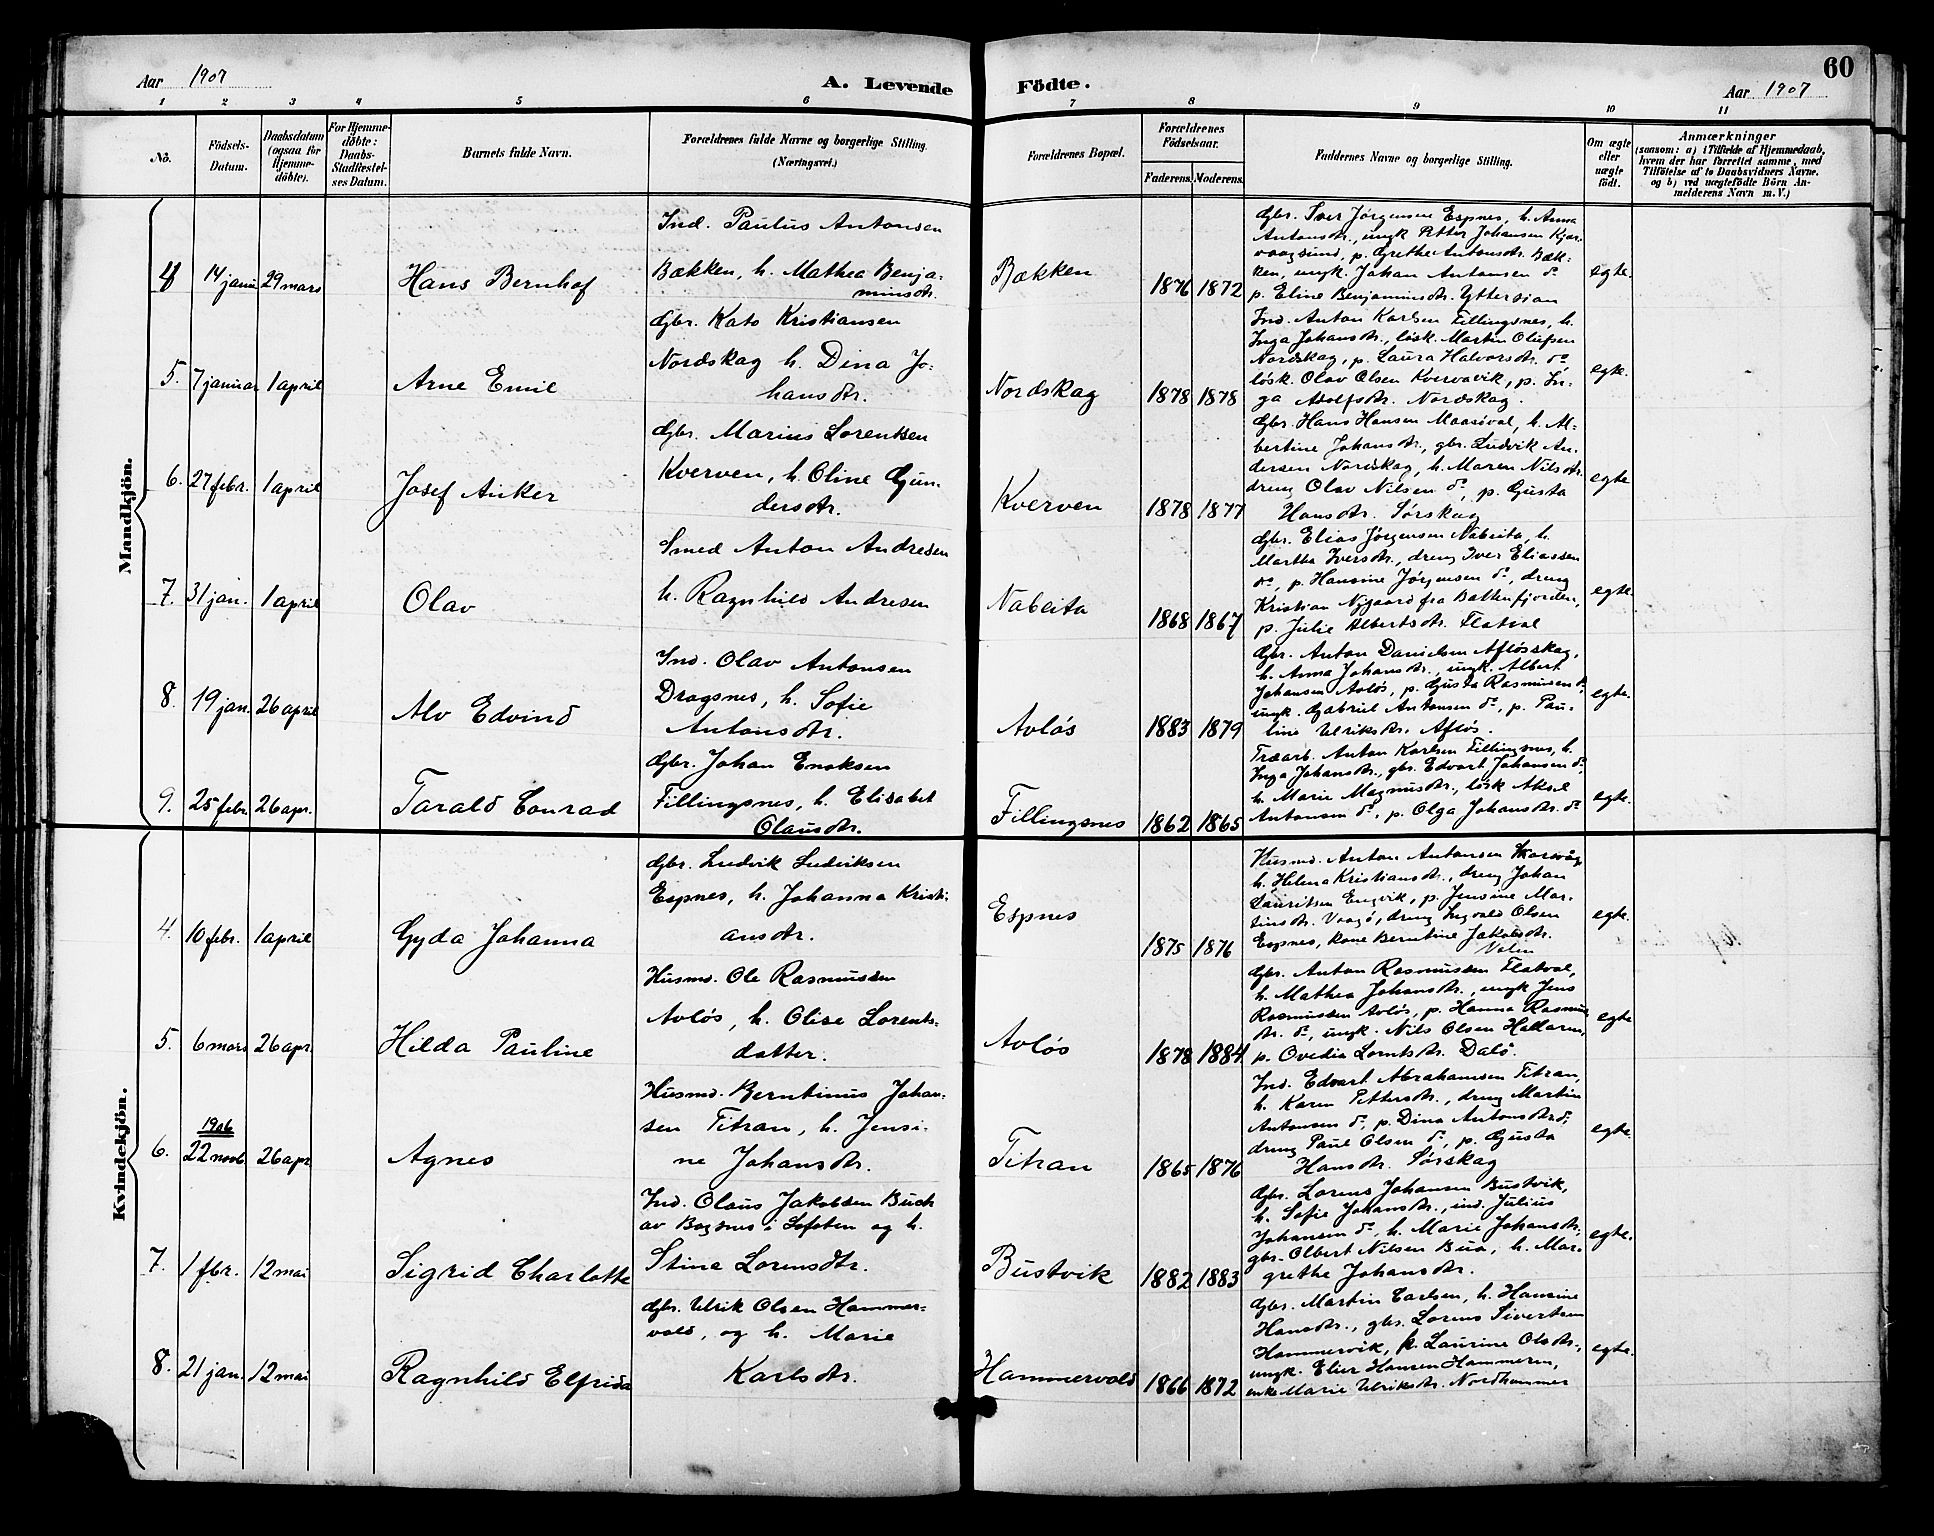 Aar 1907
A. Levende Födte.
60
Aar 1907
1 2 3 4 5 6 7 8 9 10 11
No.
Födsels-Datum.
Daabsdatum (ogsaa for Hjemme-döbte).
For Hjemme-döbte: Daabs-Stadfæstel-ses Datum.
Barnets fulde Navn.
Forældrenes fulde Navne og borgerlige Stilling. (Næringsvei.)
Forældrenes Bopæl.
Forældrenes Födselsaar.
Faderens. Moderens.
Faddernes Navne og borgerlige Stilling.
Om ægte eller uægte födt.
Anmærkninger
(saasom: a) i Tilfælde af Hjemmedaab, hvem der har forrettet samme, med Tilföielse af to Daabsvidners Navne, og b) ved uægtefödte Börn An-melderens Navn m. V.)
Mandkjön.
4 14 janu 29 mars Hans Bernhof
Ind. Paulus Antonsen
Bækken, h. Mathea Benja-
minsdtr.
Bækken 1876 1872
Gbr. Iver Jørgensen Espnes, h. Anna
Antonsdtr., ungk Petter Johansen Kjer-
vaagsund, p. Grethe Antonsdtr. Bæk-
ken, ungk. Johan Antonsen do
p. Eline Benjaminsdtr. Yttersian
egte.
5. 7 januar 1 april Arne Emil
Gbr. Kato Kristiansen
Nordskag h. Dina Jo-
hansdtr.
Nordskag 1878 1878
Ind. Anton Karlsen Fillingsnes, h.
Inga Johansdtr., løsk. Martin Olufsen
Nordskag, p. Laura Halvorsdtr. do,
løsk. Olav Olsen Kvervavik, p. In-
ga Adolfsdtr. Nordskag.
egte.
6. 27 febr. 1 april Josef Anker
Gbr. Marius Lorentsen
Kverven, h. Oline Gun-
dersdtr.
Kverven 1878 1877
Gbr. Hans Hansen Maasøval, h. Al-
bertine Johansdtr., gbr. Ludvik An-
dersen Nordskag, h. Maren Nilsdtr.
dreng Olav Nilsen do, p. Gusta
Hansdtr. Sørskag
egte
7. 31 jan. 1 april Olav
Smed Anton Andresen
h. Ragnhild Andresen
Nabeita 1868 1867
Gbr. Elias Jørgensen Nabeita, h.
Martha Iversdtr., dreng Iver Eliassen
do, p. Hansine Jørgensen do, dreng
Kristian Nygaard fra Battenfjorden,
p. Julie Albertsdtr. Flatval
egte.
8. 19 jan. 26 april Alv Edvind
Ind. Olav Antonsen
Dragsnes, h. Sofie
Antonsdtr.
Avløs 1883 1879
Gbr. Anton Danielsen Afløsskag,
h. Anna Johansdtr., ungk. Albert
Johansen Avløs, p. Gusta Rasmussen do,
ungk. Gabriel Antonsen do, p. Pau-
line Ulriksdtr. Afløs.
egte.
9. 25 febr. 26 apr. Tarald Conrad
Gbr. Johan Enoksen
Fillingsnes, h. Elisabet
Olausdtr.
Fillingsnes 1862 1865
Træarb. Anton Karlsen Fillingsnes, h.
Inga Johansdtr., gbr. Edvart Johansen do,
h. Marie Magnusdtr., løsk Aksel
Antonsen do, p. Olga Johansdtr. do
egte.
Kvindekjön.
4. 10 febr. 1 april Gyda Johanna
Gbr. Ludvik Ludviksen
Espnes, h. Johanna Kristi-
ansdtr.
Espnes 1875 1876
Husmd. Anton Antonsen
h. Helena Kristiansdtr., dreng Johan
Lauritsen Engvik, p. Jensine Mar-
tinsdtr. Vaagø, dreng Ingvald Olsen
Espnes, kone Berntine Jakobsdtr.
Valen
egte.
5. 6 mars 26 apr. Hilda Pauline
Husmd. Ole Rasmussen
Avløs, h. Olise Lorents-
datter.
Avløs 1878 1884
Gbr. Anton Rasmussen Flatval,
h. Mathea Johansdtr., ungk Jens
Rasmussen Avløs, p. Hanna Rasmus
dtr. do, ungk. Nils Olsen Hellaren,
p. Ovedia Lorntsdtr. Dalø.
egte
6. 1906
22 novb. 26 apr Agnes
Husmd. Berntinus Johan-
sen Titran, h. Jensi-
ne Johansdtr.
Titran 1865 1876
Ind. Edvart Abrahamsen Titran,
h. Karen Pettersdtr., dreng Martin
Antonsen do, p. Dina Antonsdtr. do,
dreng Paul Olsen do, p. Gusta
Hansdtr. Sørskag
egte.
7. 1 fbr. 12 mai Sigrid Charlotte
Ind. Olaus Jakobsen Buch
av Bogsnes i Lofoten og h.
Stina Lorensdtr.
Bustvik 1882 1883
Gbr. Lorens Johansen Bustvik,
h. Sofie Johansdtr., ind. Julius
Johansen do, h. Marie Johansdtr.,
gbr. Olbert Nilsen Bua, h. Mar-
grethe Johansdtr.
egte.
8. 21 jan. 12 mai Ragnhild Elfrida
Gbr. Ulrik Olsen Hammer-
vold, og h. Marie
Karlsdtr.
Hammervold 1866 1872
Gbr. Martin Carlsen, h. Hansine
Hansdtr., gbr. Lorens Sivertsen
Hammervik, p. Laurine Olsdtr.,
ungk. Elier Hansen Hammeren,
enke Marie Ulriksdtr. Nordhammer
egte.